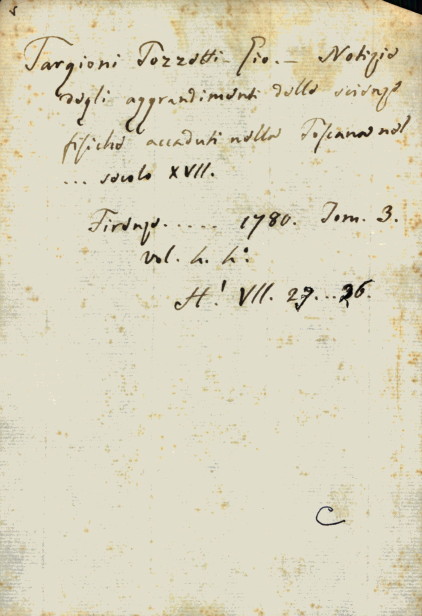 Targioni Tozzetti - Gio. - Notizie
degli aggrandimenti delle scienze
fisiche accaduti nella Toscana nel
... secolo XVII.
Firenze ..... 1780. Tom. 3.
vol. 4. 4°
H! VII. 27...26.
C